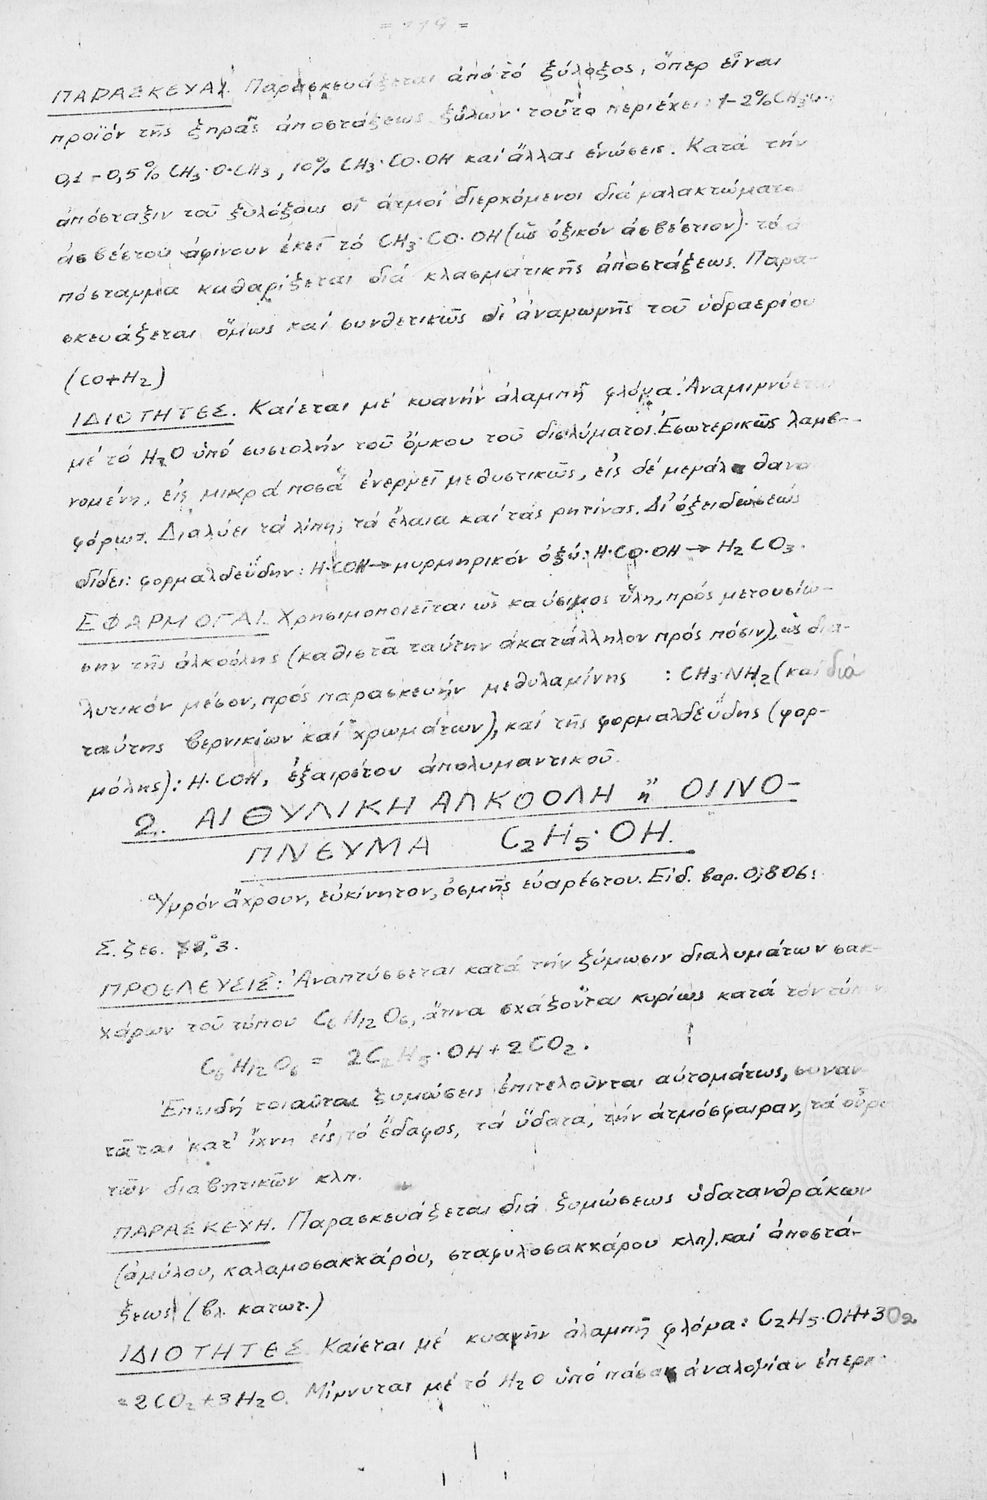 = 119 =
ΠΑΡΑΣΚΕΥΑΙ. Παρασκευάζεται ἀπό τό ξύλοξος, ὅπερ εἶναι
προϊόν τῆς ξηρᾶς ἀποστάξεως ξύλων· τοῦτο περιέχει: 1-2% CH₃
0,1-0,5% CH₃·O·CH₃, 10% CH₃·CO·OH καί ἄλλας ἑνώσεις. Κατά τήν
ἀπόσταξιν τοῦ ξυλόξους οἱ ἀτμοί διερχόμενοι διά γαλακτώματος
ἀσβέστου ἀφίνουν ἐκεῖ τό CH₃·CO·OH (ὡς ὀξικόν ἀσβέστιον)· τό ἀ
πόσταγμα καθαρίζεται διά κλασματικῆς ἀποστάξεως. Παρα-
σκευάζεται ὅμως καί συνθετικῶς δι' ἀναγωγῆς τοῦ ὑδραερίου
(CO+H₂)
ΙΔΙΟΤΗΤΕΣ. Καίεται μέ κυανῆν ἀλαμπῆ φλόγα. Ἀναμιγνύεται
μέ τό H₂O ὑπό συστολήν τοῦ ὄγκου τοῦ διαλύματος. Ἐσωτερικῶς λαμβ-
νομένη, εἰς μικρά ποσά ἐνεργεῖ μεθυστικῶς, εἰς δέ μεγάλα θανα
φόρως. Διαλύει τά λίπη, τά ἔλαια καί τάς ρητίνας. Δι' ὀξειδώσεως
δίδει: φορμαλδεΰδην: H·COH → μυρμηκικόν ὀξύ: H·CO·OH → H₂CO₃.
ΕΦΑΡΜΟΓΑΙ. Χρησιμοποιεῖται ὡς καύσιμος ὕλη, πρός μετουσίω-
σιν τῆς ἀλκοόλης (καθιστᾶ ταύτην ἀκατάλληλον πρός πόσιν), ὡς δια-
λυτικόν μέσον, πρός παρασκευήν μεθυλαμίνης : CH₃·NH₂ (καί διά
ταύτης βερνικίων καί χρωμάτων), καί τῆς φορμαλδεΰδης (φορ-
μόλης): H·COH, ἐξαιρέτου ἀπολυμαντικοῦ.
2. ΑΙΘΥΛΙΚΗ ΑΛΚΟΟΛΗ ἤ ΟΙΝΟ-
ΠΝΕΥΜΑ C₂H₅·OH.
Ὑγρόν ἄχρουν, εὐκίνητον, ὀσμῆς εὐαρέστου. Εἰδ. βαρ. 0,806:
Σ. ζες. 78,°3.
ΠΡΟΕΛΕΥΣΙΣ: Ἀναπτύσσεται κατά τήν ζύμωσιν διαλυμάτων σακ-
χάρων τοῦ τύπου C₆H₁₂O₆, ἅτινα σχάζονται κυρίως κατά τόν τύπον
C₆H₁₂O₆ = 2C₂H₅·OH + 2CO₂.
Ἐπειδή τοιαῦται ζυμώσεις ἐπιτελοῦνται αὐτομάτως, συναν-
τᾶται κατ' ἴχνη εἰς τό ἔδαφος, τά ὕδατα, τήν ἀτμόσφαιραν, τά οὖρα
τῶν διαβητικῶν κλπ.
ΠΑΡΑΣΚΕΥΗ. Παρασκευάζεται διά ζυμώσεως ὑδατανθράκων
(ἀμύλου, καλαμοσακχάρου, σταφυλοσακχάρου κλπ). καί ἀποστά-
ξεως (βλ. κατωτ.)
ΙΔΙΟΤΗΤΕΣ Καίεται μέ κυανῆν ἀλαμπῆ φλόγα: C₂H₅·OH+3O₂
=2CO₂+3H₂O. Μίγνυται μέ τό H₂O ὑπό πᾶσαν ἀναλογίαν